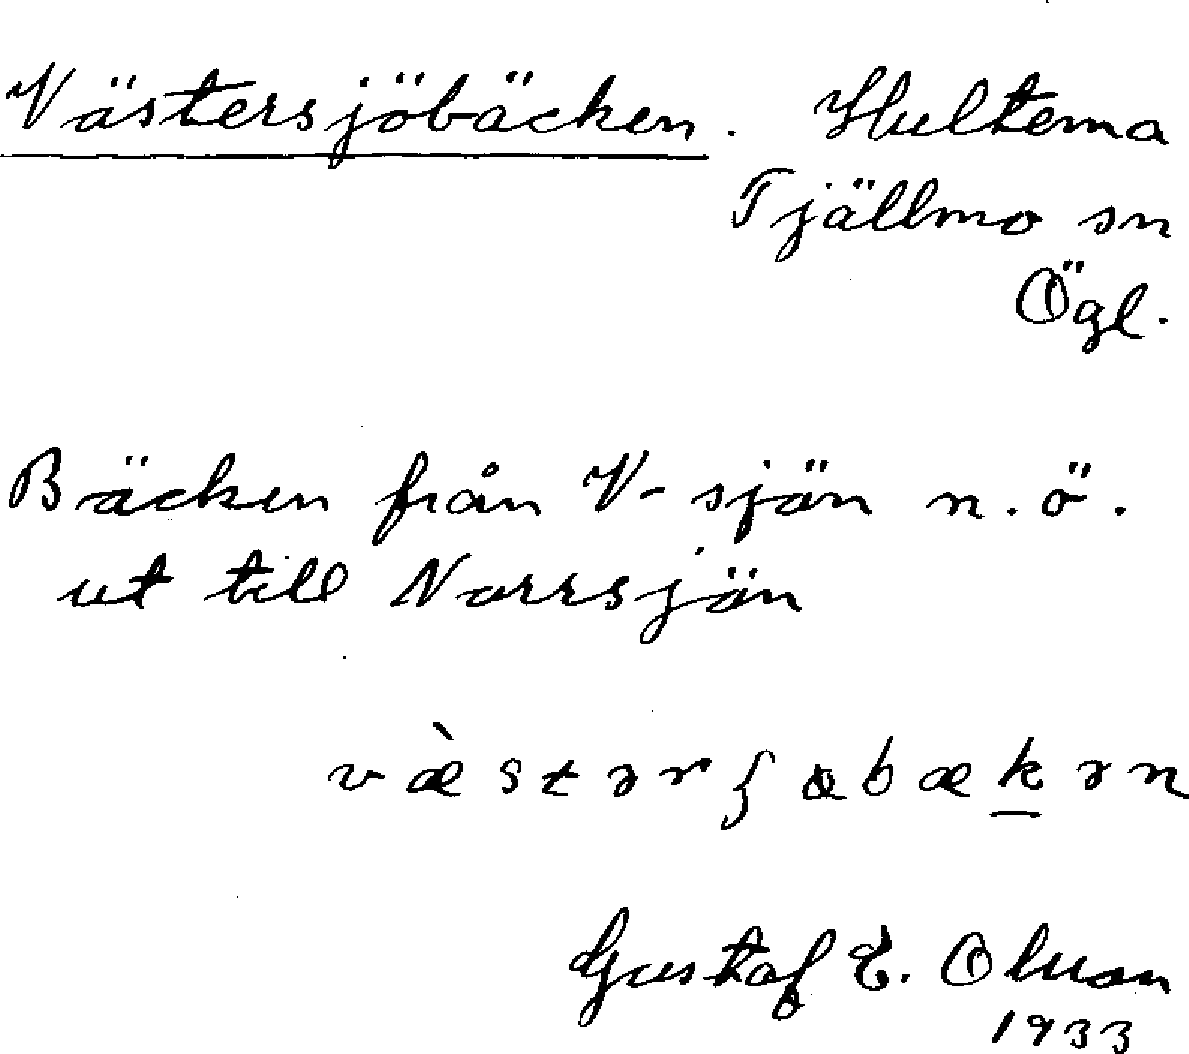 Västersjöbäcken. Hultema
Tjällmo sn
Ögl.
Bäcken från V-sjön n.ö.
ut till Norrsjön
Gustaf E. Olsson
1933